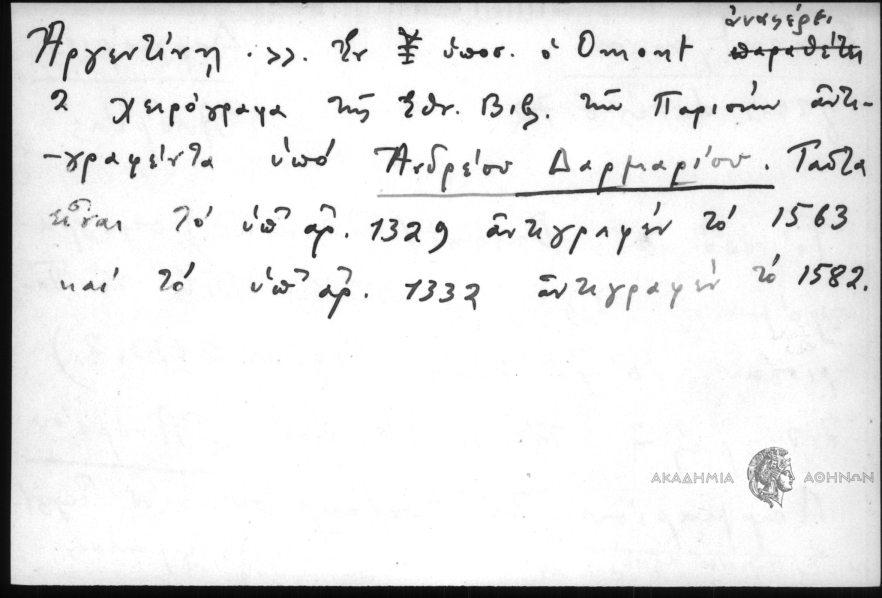 ἀναφέρει
Ἀργεντίνῃ . ». Ἐν ὑποσ. ὁ Omont παραθέτει
2 χειρόγραφα τῆς Ἐθν. Βιβ. τῶν Παρισίων ἀντι-
-γραφέντα ὑπό Ἀνδρέου Δαρμαρίου. Ταῦτα
εἶναι τό ὑπ' ἀρ. 1329 ἀντιγραφέν τό 1563
καί τό ὑπ' ἀρ. 1332 ἀντιγραφέν τό 1582.
ΑΚΑΔΗΜΙΑ ΑΘΗΝΩΝ